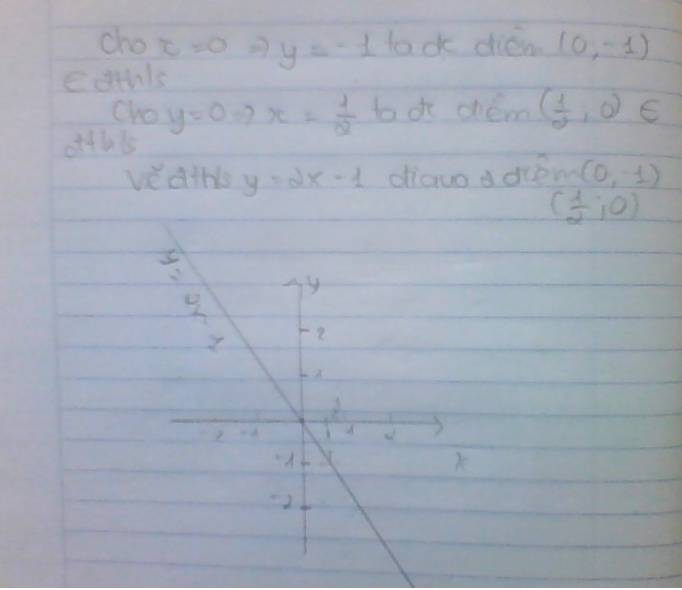 Cho x = 0 => y = -1 ta đc điểm (0, -1)
∈ đths
Cho y = 0 => x = 1/2 ta đc điểm (1/2 ; 0) ∈
đths
Vẽ đths y = 2x - 1 đi qua 2 điểm (0, -1)
(1/2 ; 0)
y
2
1
1/2
-2 -1 1 2
x
-1
-2